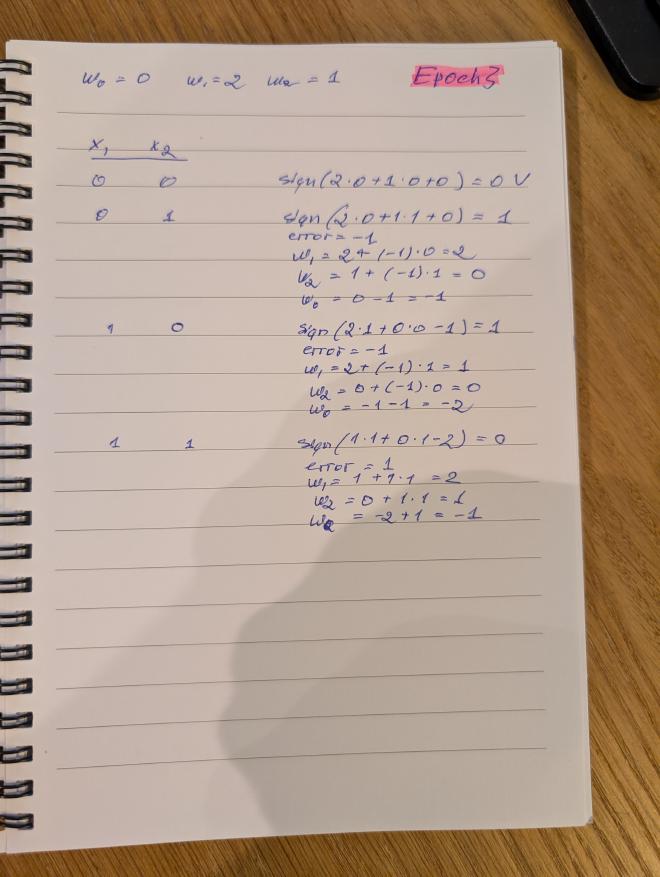 w₀ = 0 w₁ = 2 w₂ = 1 Epoch 3
x₁ x₂
0 0 sign(2·0+1·0+0) = 0 V
0 1 sign(2·0+1·1+0) = 1
error = -1
w₁ = 2+(-1)·0 = 2
w₂ = 1+(-1)·1 = 0
w₀ = 0-1 = -1
1 0 sign(2·1+0·0-1) = 1
error = -1
w₁ = 2+(-1)·1 = 1
w₂ = 0+(-1)·0 = 0
w₀ = -1-1 = -2
1 1 sign(1·1+0·1-2) = 0
error = 1
w₁ = 1+1·1 = 2
w₂ = 0+1·1 = 1
w₀ = -2+1 = -1